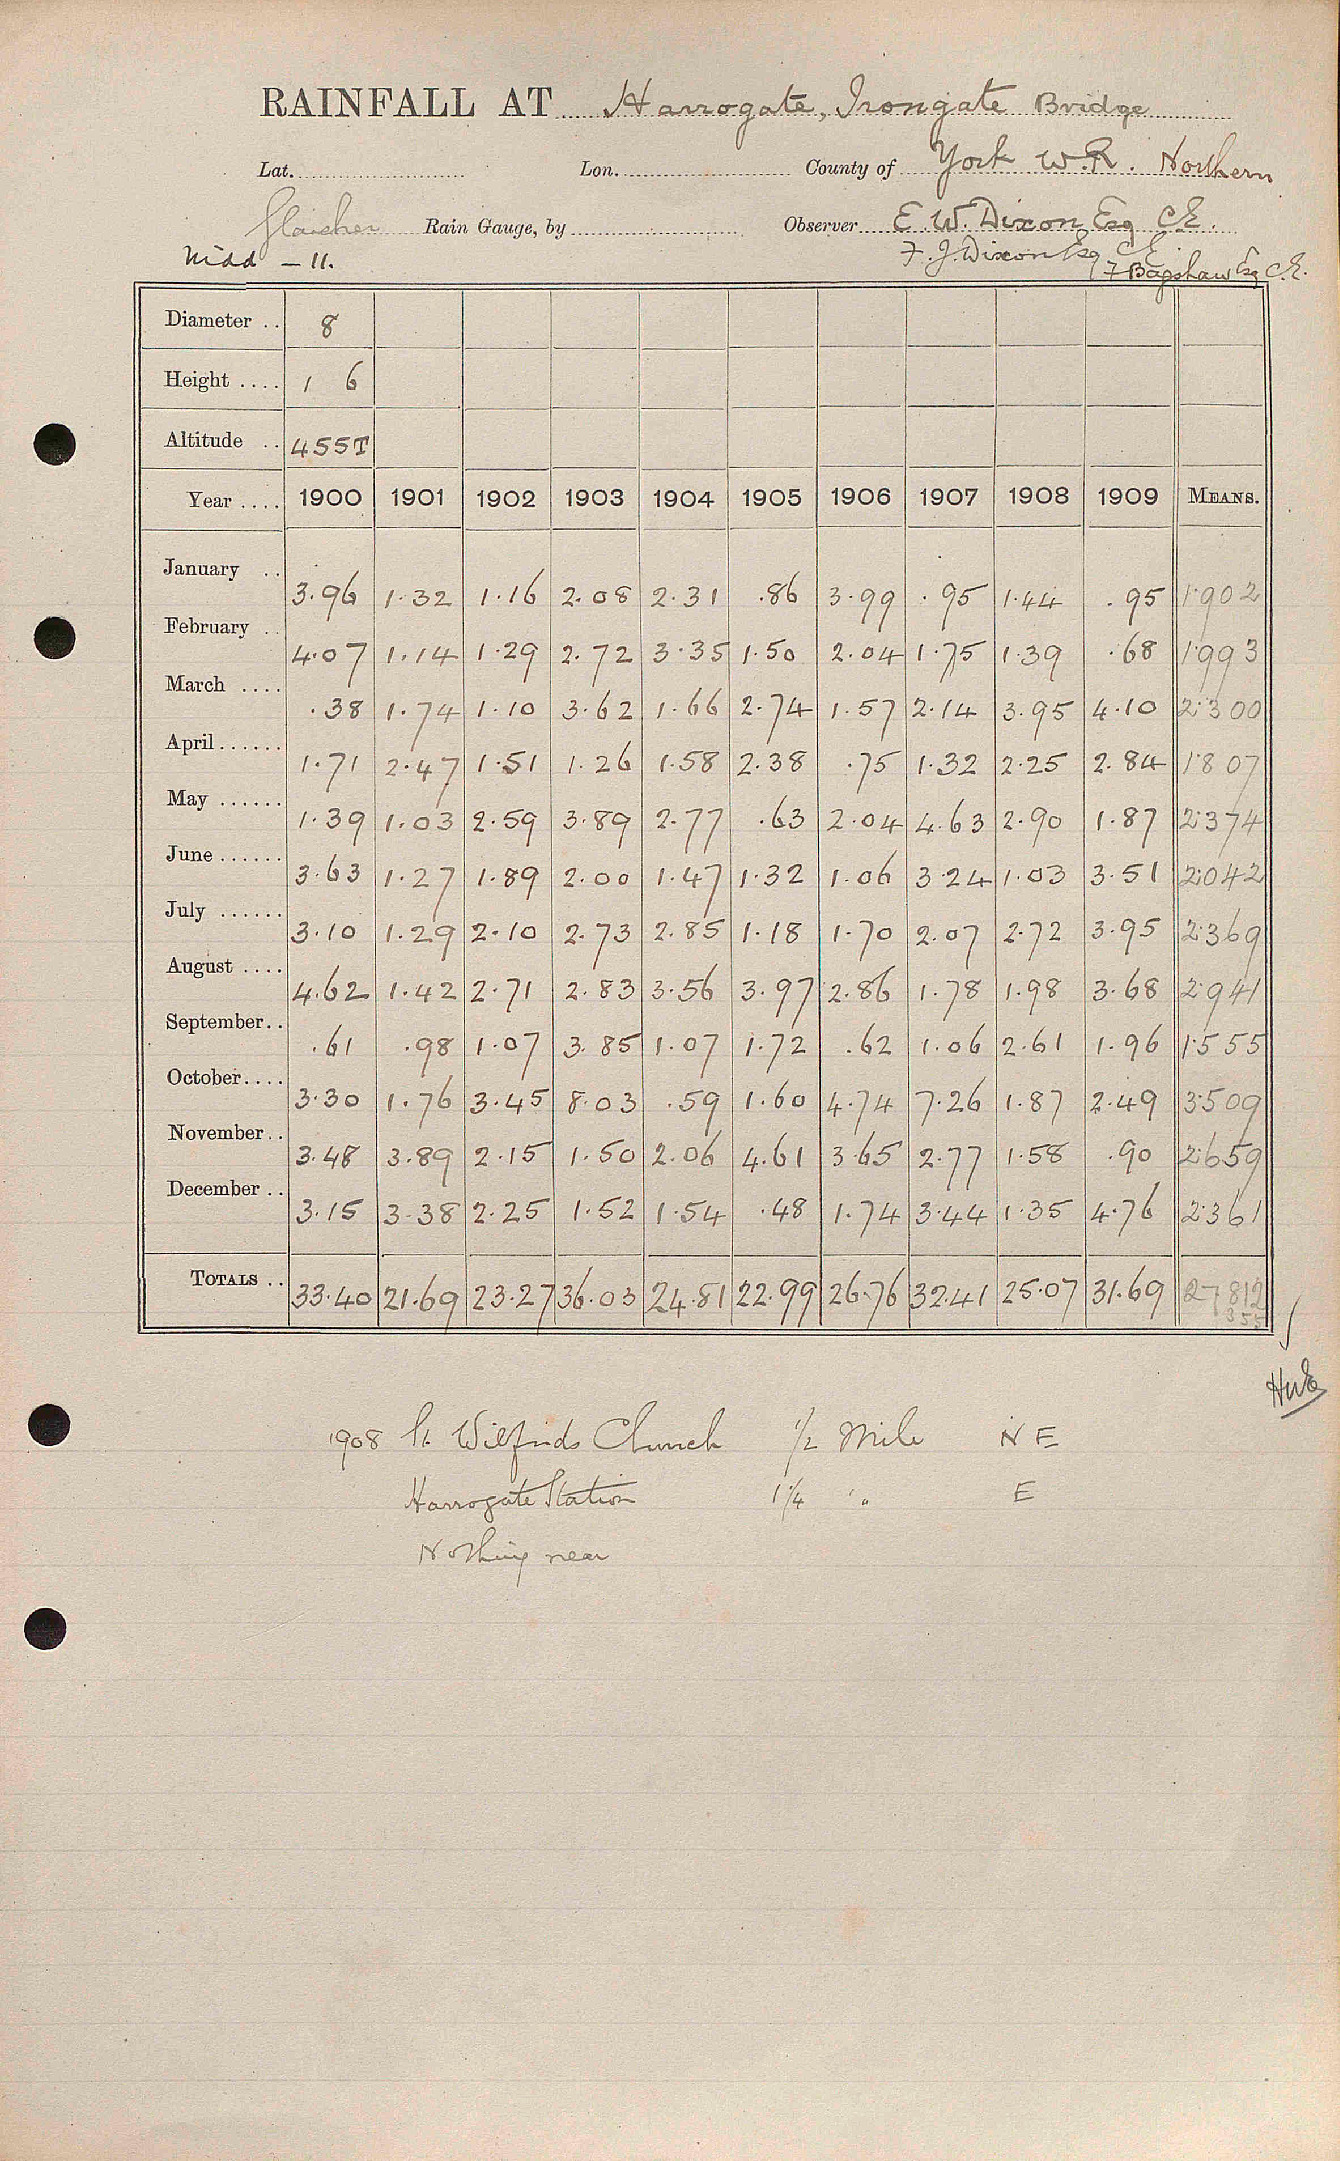 RAINFALL AT Harrogate, Irongate Bridge
Lat. Lon. County of York W.R. Northern
Glaisher Rain Gauge, by Observer E. W. Dixon Esq C.E.
Nidd — 11. F. J. Dixon Esq C.E.
F Bagshaw Esq C.E.
Diameter .. 8
Height .... 1 6
Altitude .. 455T
Year .... 1900 1901 1902 1903 1904 1905 1906 1907 1908 1909 MEANS.
January .. 3.96 1.32 1.16 2.08 2.31 .86 3.99 .95 1.44 .95 1.902
February .. 4.07 1.14 1.29 2.72 3.35 1.50 2.04 1.75 1.39 .68 1.993
March .... .38 1.74 1.10 3.62 1.66 2.74 1.57 2.14 3.95 4.10 2.300
April ...... 1.71 2.47 1.51 1.26 1.58 2.38 .75 1.32 2.25 2.84 1.807
May ...... 1.39 1.03 2.59 3.89 2.77 .63 2.04 4.63 2.90 1.87 2.374
June ...... 3.63 1.27 1.89 2.00 1.47 1.32 1.06 3.24 1.03 3.51 2.042
July ...... 3.10 1.29 2.10 2.73 2.85 1.18 1.70 2.07 2.72 3.95 2.369
August .... 4.62 1.42 2.71 2.83 3.56 3.97 2.86 1.78 1.98 3.68 2.941
September.. .61 .98 1.07 3.85 1.07 1.72 .62 1.06 2.61 1.96 1.555
October.... 3.30 1.76 3.45 8.03 .59 1.60 4.74 7.26 1.87 2.49 3.509
November.. 3.48 3.89 2.15 1.50 2.06 4.61 3.65 2.77 1.58 .90 2.659
December .. 3.15 3.38 2.25 1.52 1.54 .48 1.74 3.44 1.35 4.76 2.361
TOTALS .. 33.40 21.69 23.27 36.03 24.81 22.99 26.76 32.41 25.07 31.69 27.812
1908 St. Wilfrids Church 1/2 Mile N E
Harrogate Station 1 1/4 " E
Nothing near